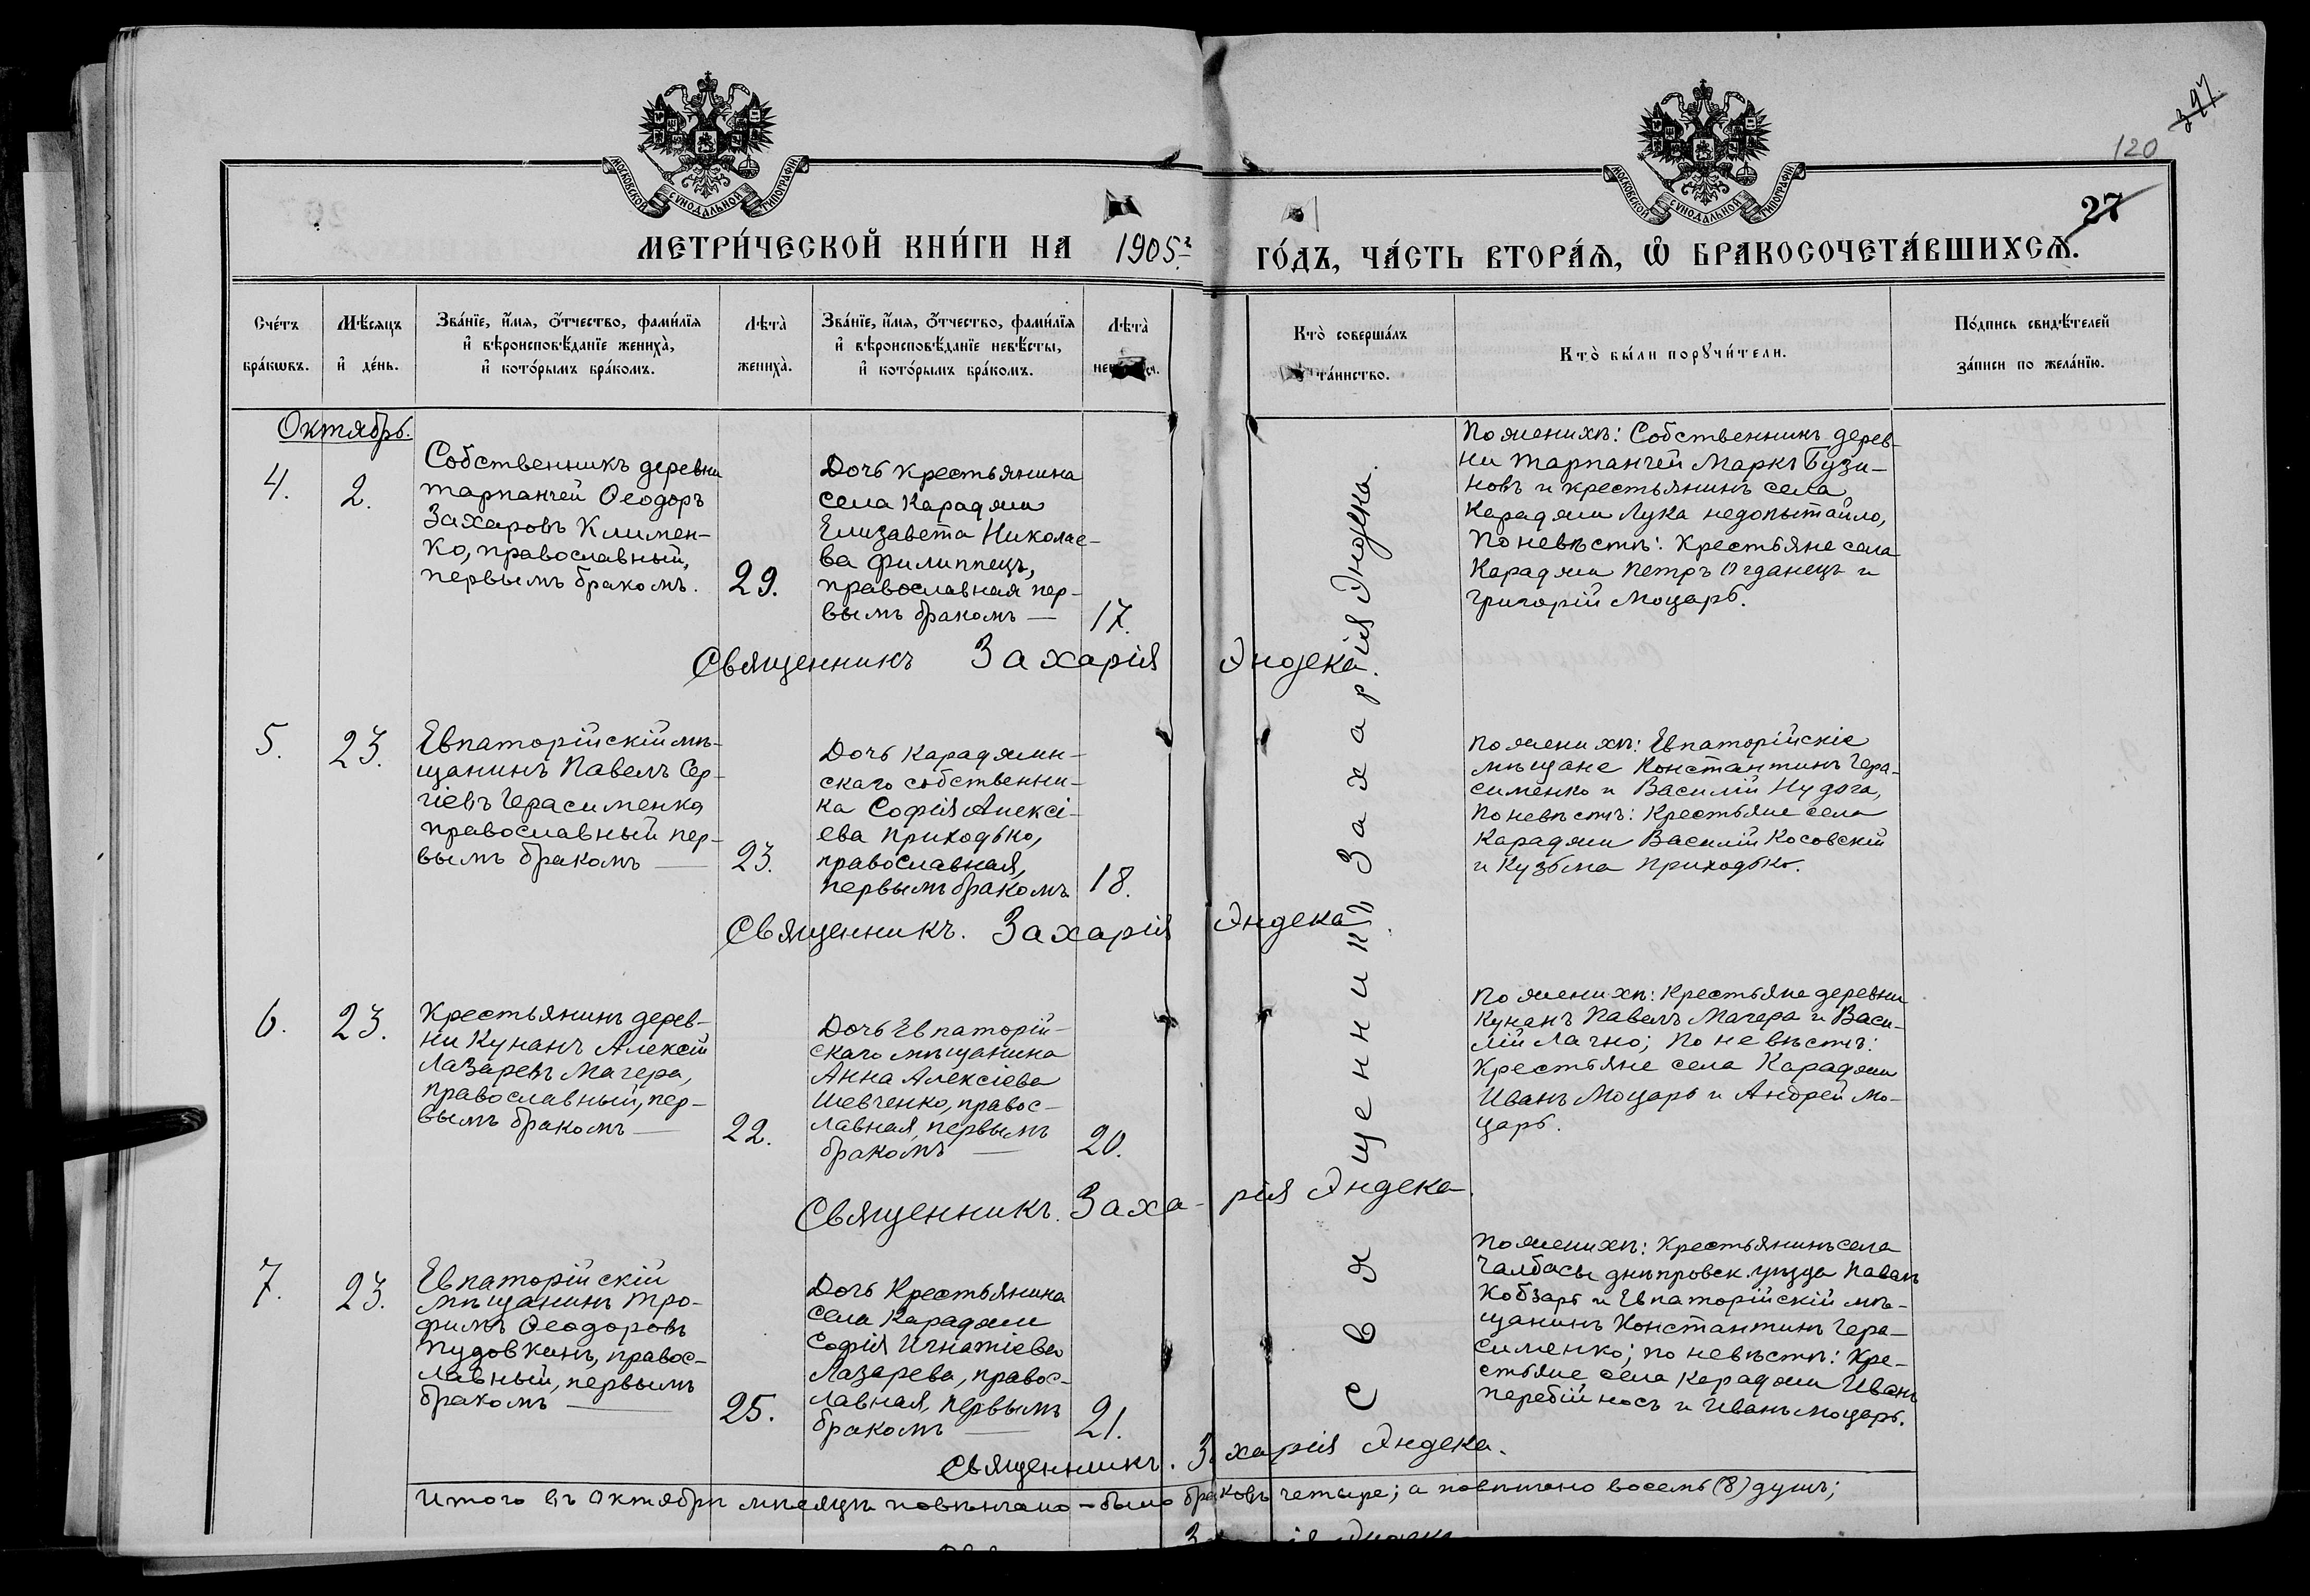 МОСКОВСКОЙ СѴНОДАЛЬНОЙ ТИПОГРАФІИ
МОСКОВСКОЙ СѴНОДАЛЬНОЙ ТИПОГРАФІИ
120
27
МЕТРИ́ЧЕСКОЙ КНИ́ГИ НА 1905 г. ГО́ДЪ, ЧА́СТЬ ВТОРА́Я, Ѡ БРАКОСОЧЕТА́ВШИХСЯ.
Сче́тъ
бра́кѡвъ.
Мѣ́сяцъ
и҆ де́нь.
Зва́нїе, и҆́мя, ѻ҆́тчество, фами́лїя
и҆ вѣроисповѣ́данїе жениха̀,
и҆ кото́рымъ бра́комъ.
Лѣта̀
жениха̀.
Зва́нїе, и҆́мя, ѻ҆́тчество, фами́лїя
и҆ вѣроисповѣ́данїе невѣ́сты,
и҆ кото́рымъ бра́комъ.
Лѣта̀
Кто̀ соверша́лъ
та́инство.
Кто̀ бы́ли порꙋчи́тели.
По́дпись свидѣ́телей
за́писи по жела́нїю.
Октябрь.
4.
2.
Собственникъ деревни
Тарпанчей Ѳеодоръ
Захаровъ Климен-
ко, православный,
первымъ бракомъ.
29.
Дочь крестьянина
села Караджи
Елизавета Николае-
ва Филиппецъ,
православная пер-
вымъ бракомъ —
17.
По женихѣ: Собственникъ дерев-
ни Тарпанчей Маркъ Бузи-
новъ и крестьянинъ села
Караджи Лука Недопытайло,
По невѣстѣ: Крестьяне села
Караджи Петръ Огданецъ и
Григорій Моцарь.
Священникъ Захарія Эндека.
5.
23.
Евпаторійскій мѣ-
щанинъ Павелъ Сер-
гіевъ Герасименко,
православный пер-
вымъ бракомъ —
23.
Дочь Караджин-
скаго собственни-
ка Софія Алексі-
ева Приходько,
православная,
первымъ бракомъ
18.
По женихѣ: Евпаторійскіе
мѣщане Константинъ Гера-
сименко и Василій Нудога,
По невѣстѣ: Крестьяне села
Караджи Василій Косовскій
и Кузьма Приходько.
Священникъ. Захарія Эндека.
6.
23.
Крестьянинъ дерев-
ни Кунанъ Алексій
Лазаревъ Мачера,
православный, пер-
вымъ бракомъ —
22.
Дочь Евпаторій-
скаго мѣщанина
Анна Алексіева
Шевченко, правос-
лавная, первымъ
бракомъ —
20.
По женихѣ: Крестьяне деревни
Кунанъ Павелъ Мачера и Васи-
лій Лачно; По невѣстѣ:
Крестьяне села Караджи
Иванъ Моцарь и Андрей Мо-
царь.
Священникъ. Заха- рія Эндека.
7.
23.
Евпаторійскій
мѣщанинъ Тро-
фимъ Ѳеодоровъ
Пудовкинъ, правос-
лавный, первымъ
бракомъ —
25.
Дочь Крестьянина
села Караджи
Софія Игнатіева
Лазарева, правос-
лавная, первымъ
бракомъ —
21.
По женихѣ: Крестьянинъ села
Чалбасы днѣпровск. уѣзда Павелъ
Кобзарь и Евпаторійскій мѣ-
щанинъ Константинъ Гера-
сименко; по невѣстѣ: Кре-
стьяне села Караджи Иванъ
Перебійносъ и Иванъ Моцарь.
Священникъ. Захарія Эндека.
Священникъ Захарія Эндека.
Итого въ Октябрѣ мѣсяцѣ повѣнчано - было браковъ четыре; а повѣнчано восемь (8) душъ;